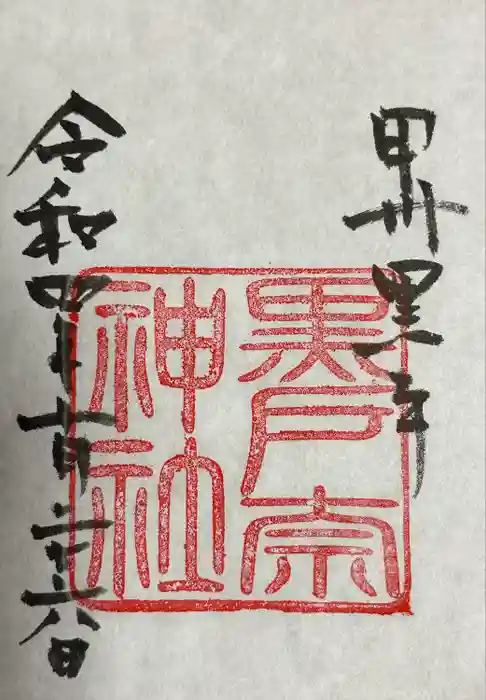 甲州黒戸
黒戸奈
神社
令和四年十月二十六日